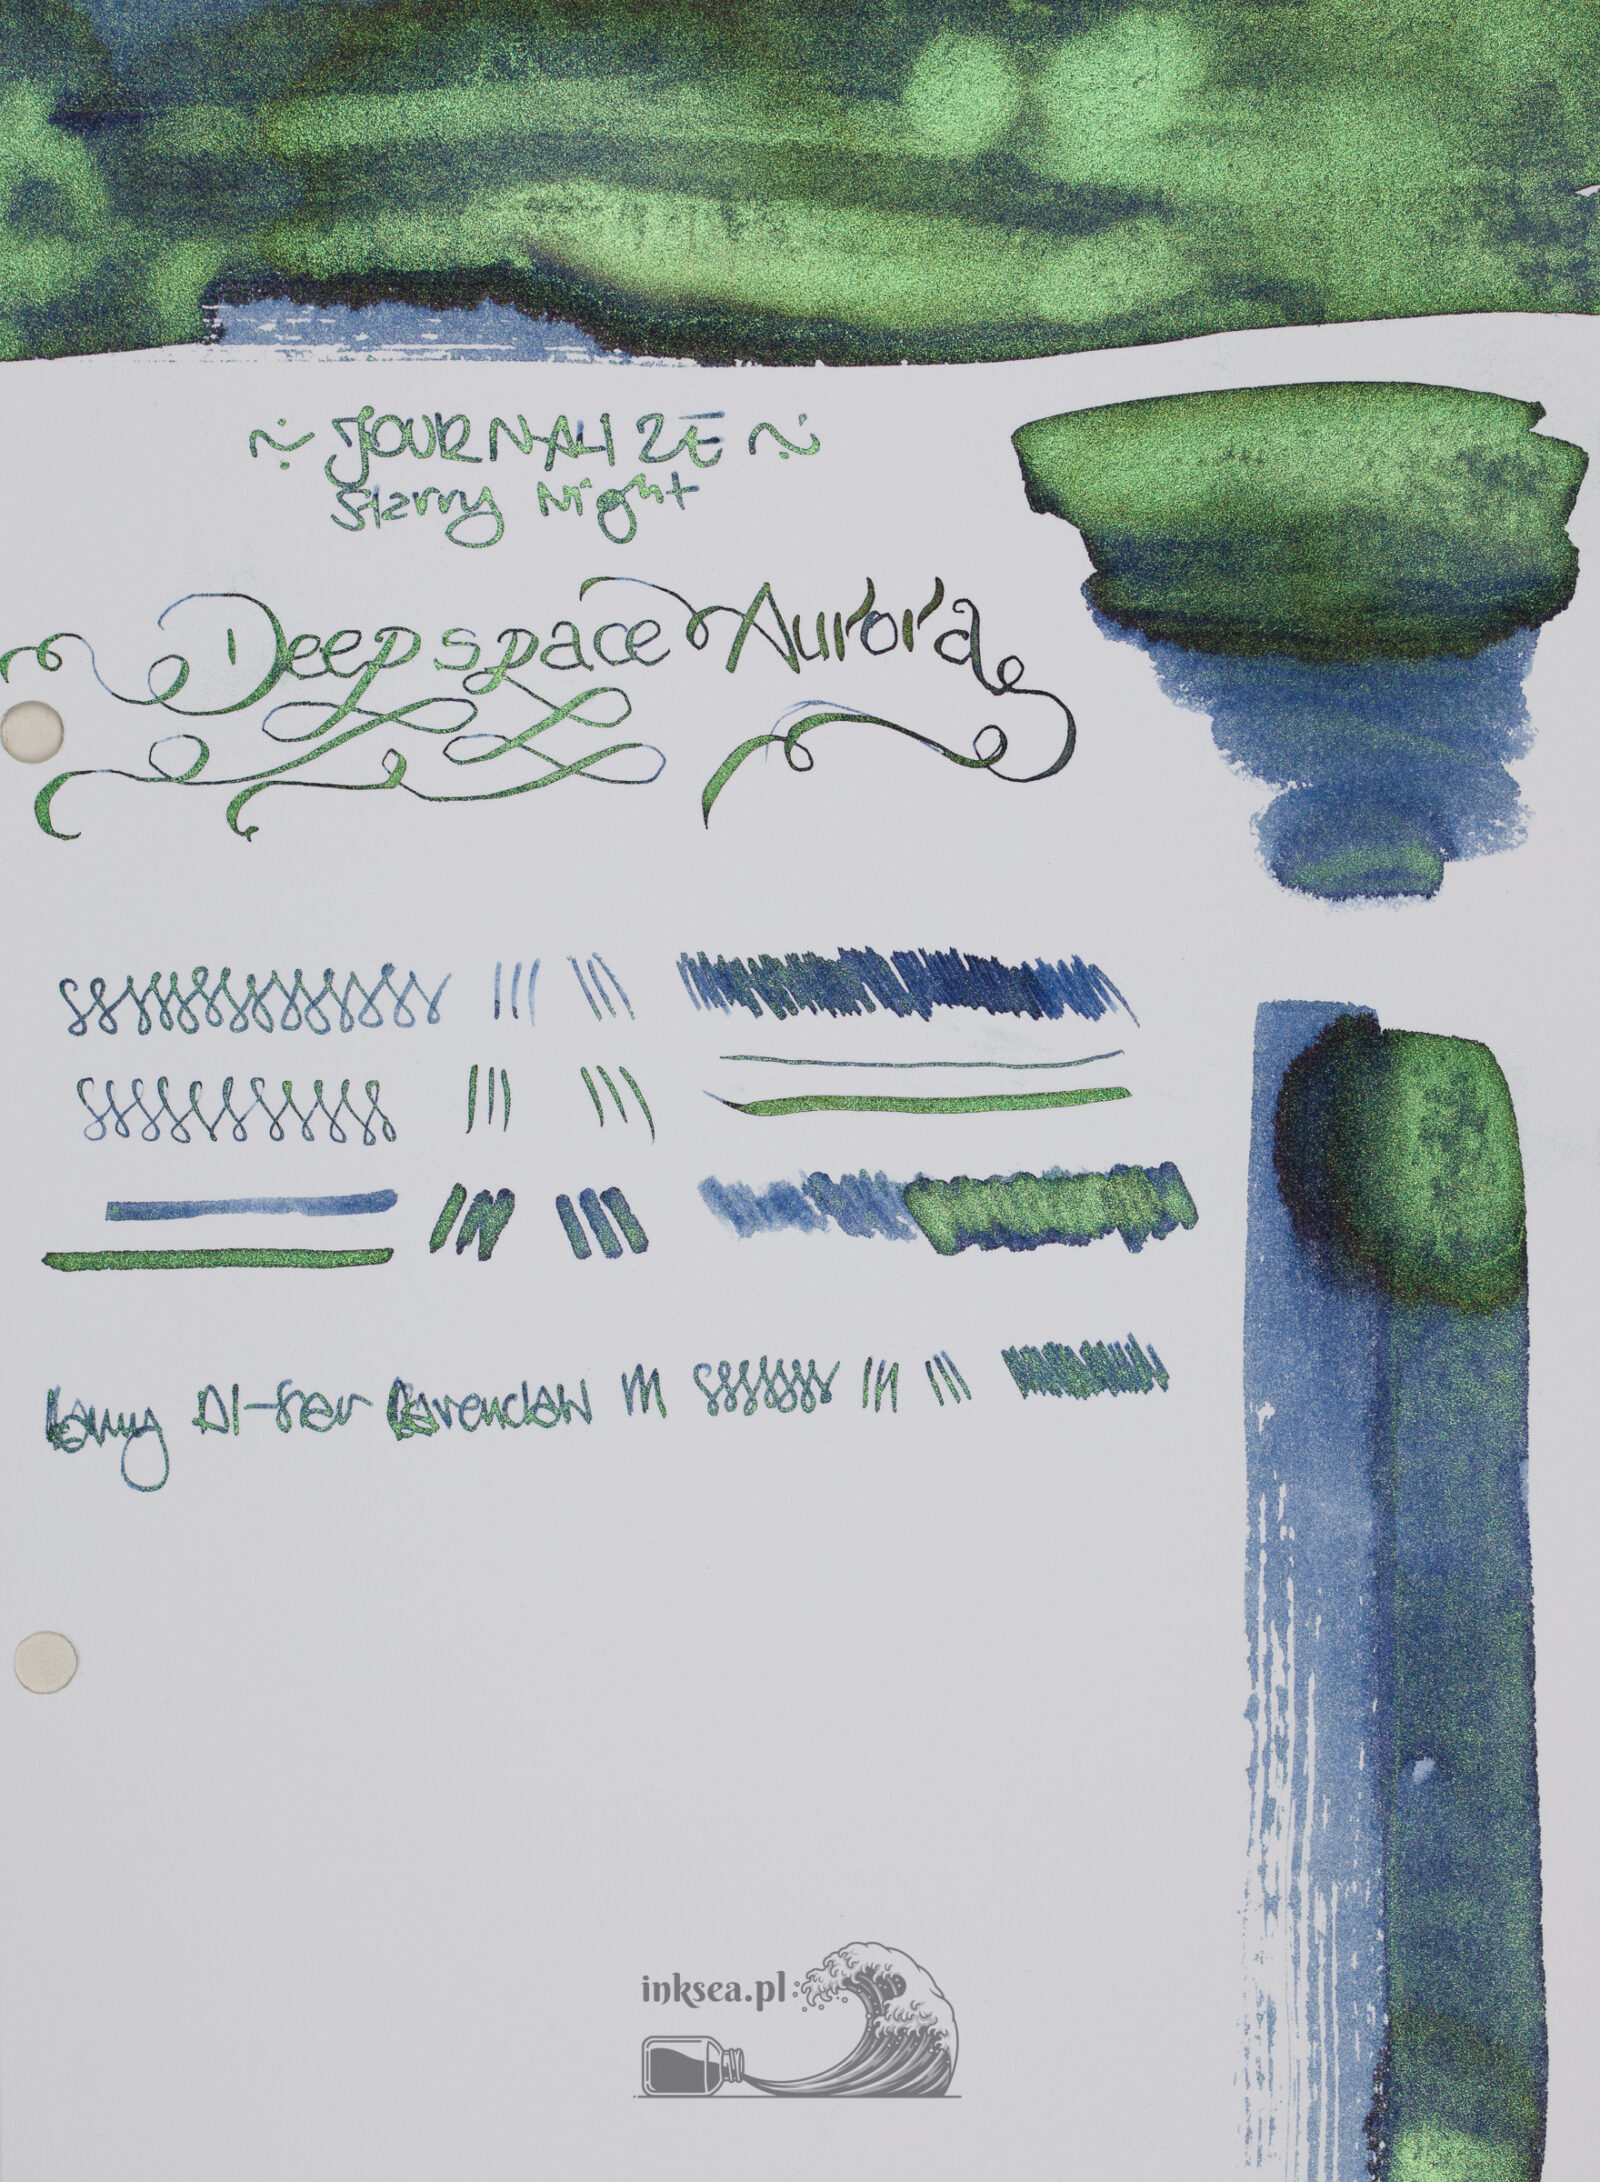 ~ JOURNALIZE ~
Starry Night
Deepspace Aurora
Lamy Al-Star Ravenclaw M
inksea.pl